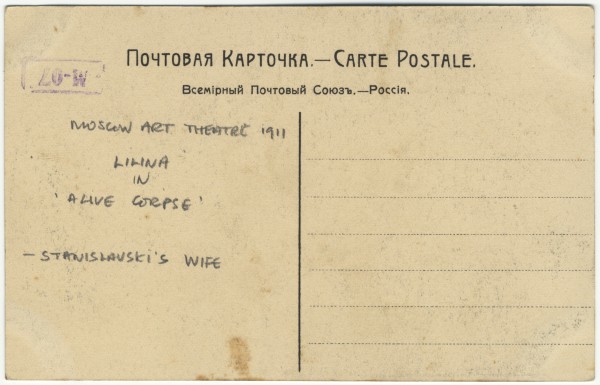 Почтовая Карточка.—Carte Postale.
Всемірный Почтовый Союзъ.—Россія.
MOSCOW ART THEATRE 1911
LILINA
IN
'ALIVE CORPSE'
– STANISLAVSKI'S WIFE